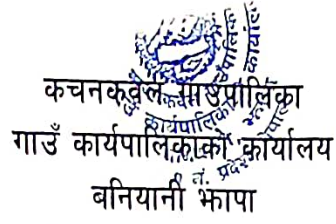 कचनकवल गाउँपालिका
गाउँ कार्यपालिकाको कार्यालय
बनियानी झापा